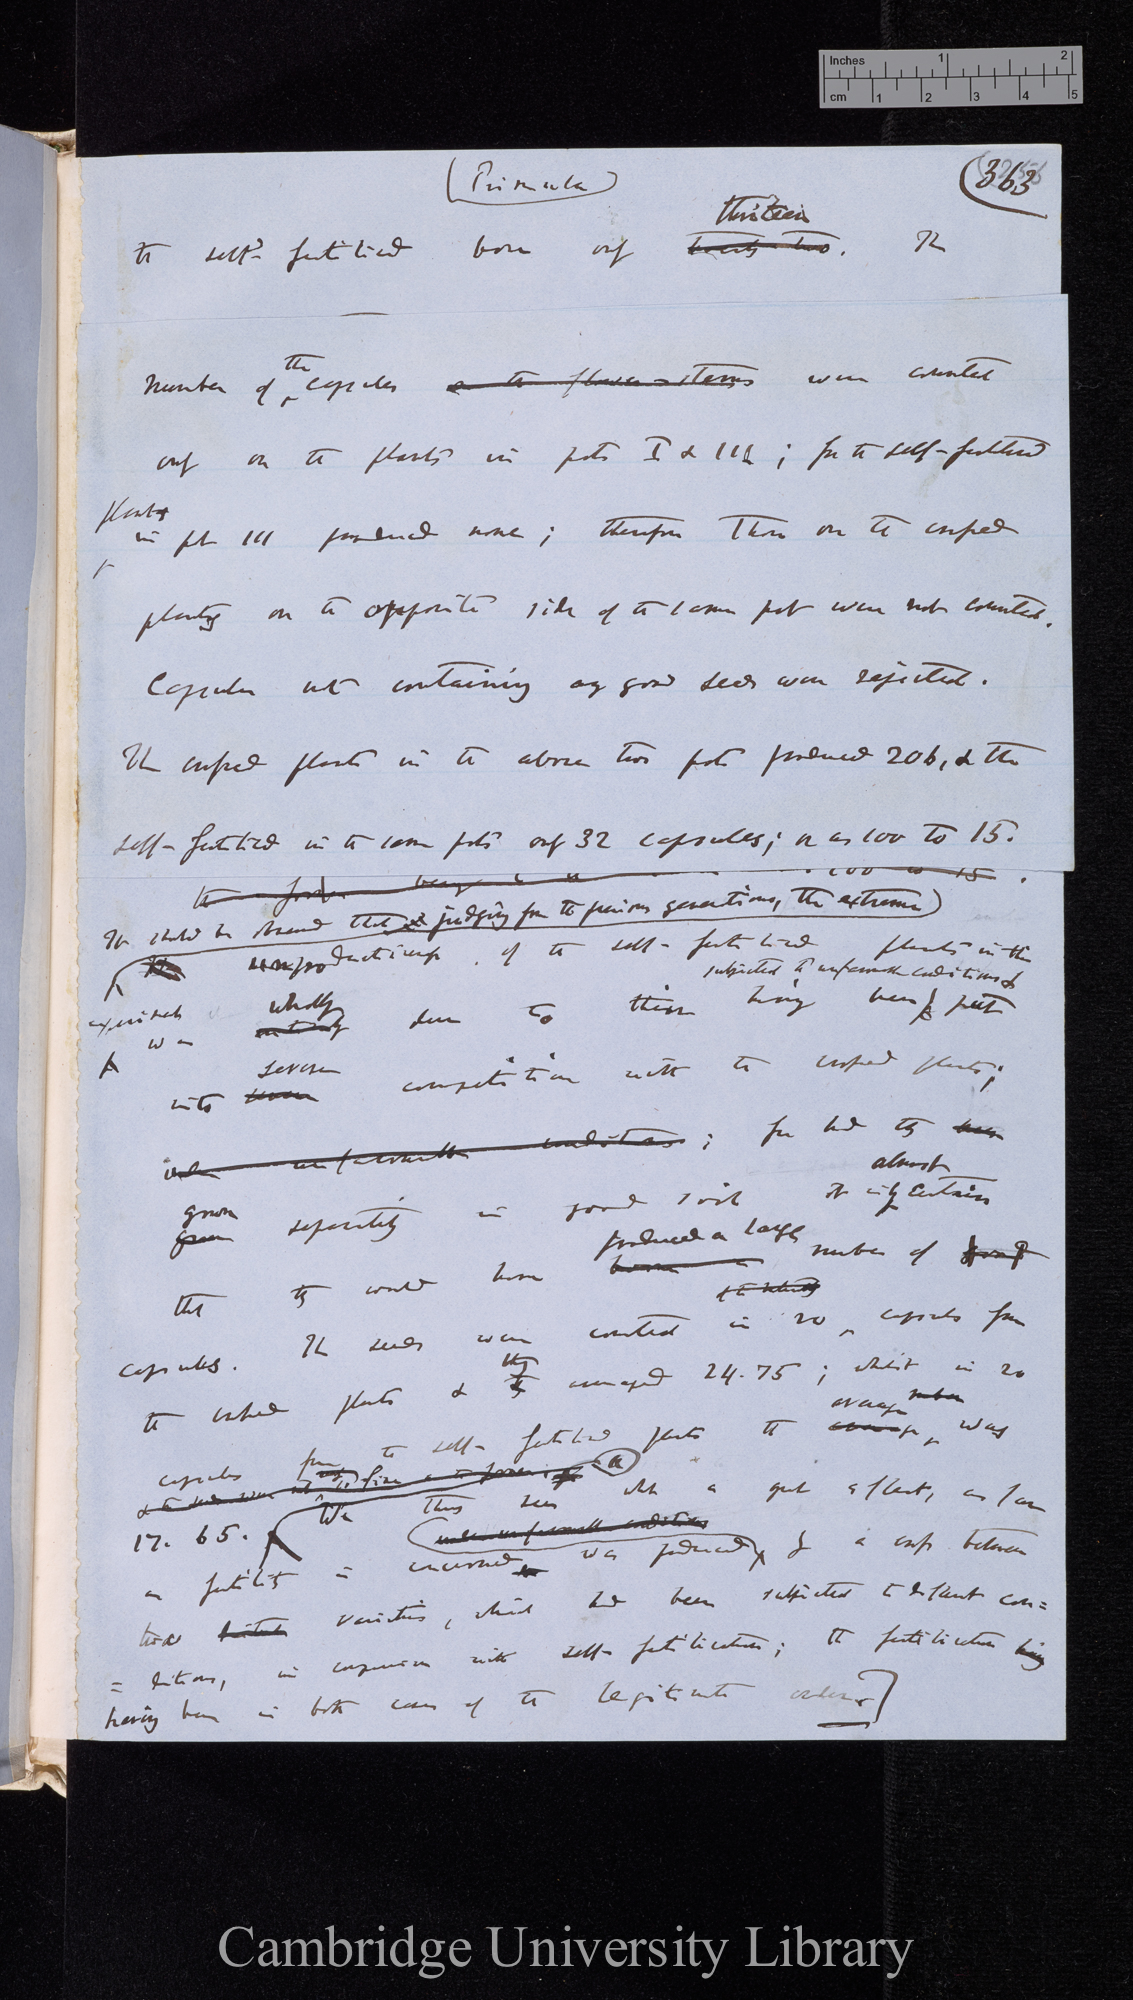 Inches 1 2
cm 1 2 3 4 5
(Primula)
363
thirteen
the self-fertilised bore only twenty-two. The
number of the capsules on the flower-stems were counted
only on the plants in pots I & III; for the self-fertilised
plants
in pot III produced none; therefore those on the crossed
plants on the opposite side of the same pot were not counted.
Capsules not containing any good seeds were rejected.
The crossed plants in the above two pots produced 206, & the
self-fertilised in the same pots only 32 capsules; or as 100 to 15.
100 to 15.
It should be observed that judging from the previous generations, the extreme
unproductiveness of the self-fertilised plants in this
subjected to unfavourable conditions &
experiment was wholly due to their having been put
severe
into competition with the crossed plants;
unfavourable conditions; for had they
almost
grown separately in good soil it is certain
produced a large
that they would have number of
capsules. The seeds were counted in 20 capsules from
they
the crossed plants & averaged 24.75; whilst in 20
average number
capsules from the self-fertilised plants the was
a
17.65. We thus see what a great effect, as far
under unfavourable conditions
as fertility is concerned, was produced by a cross between
two varieties, which had been subjected to different con=
=ditions, in comparison with self-fertilisation; the fertilisation
having been in both cases of the legitimate order.]
Cambridge University Library